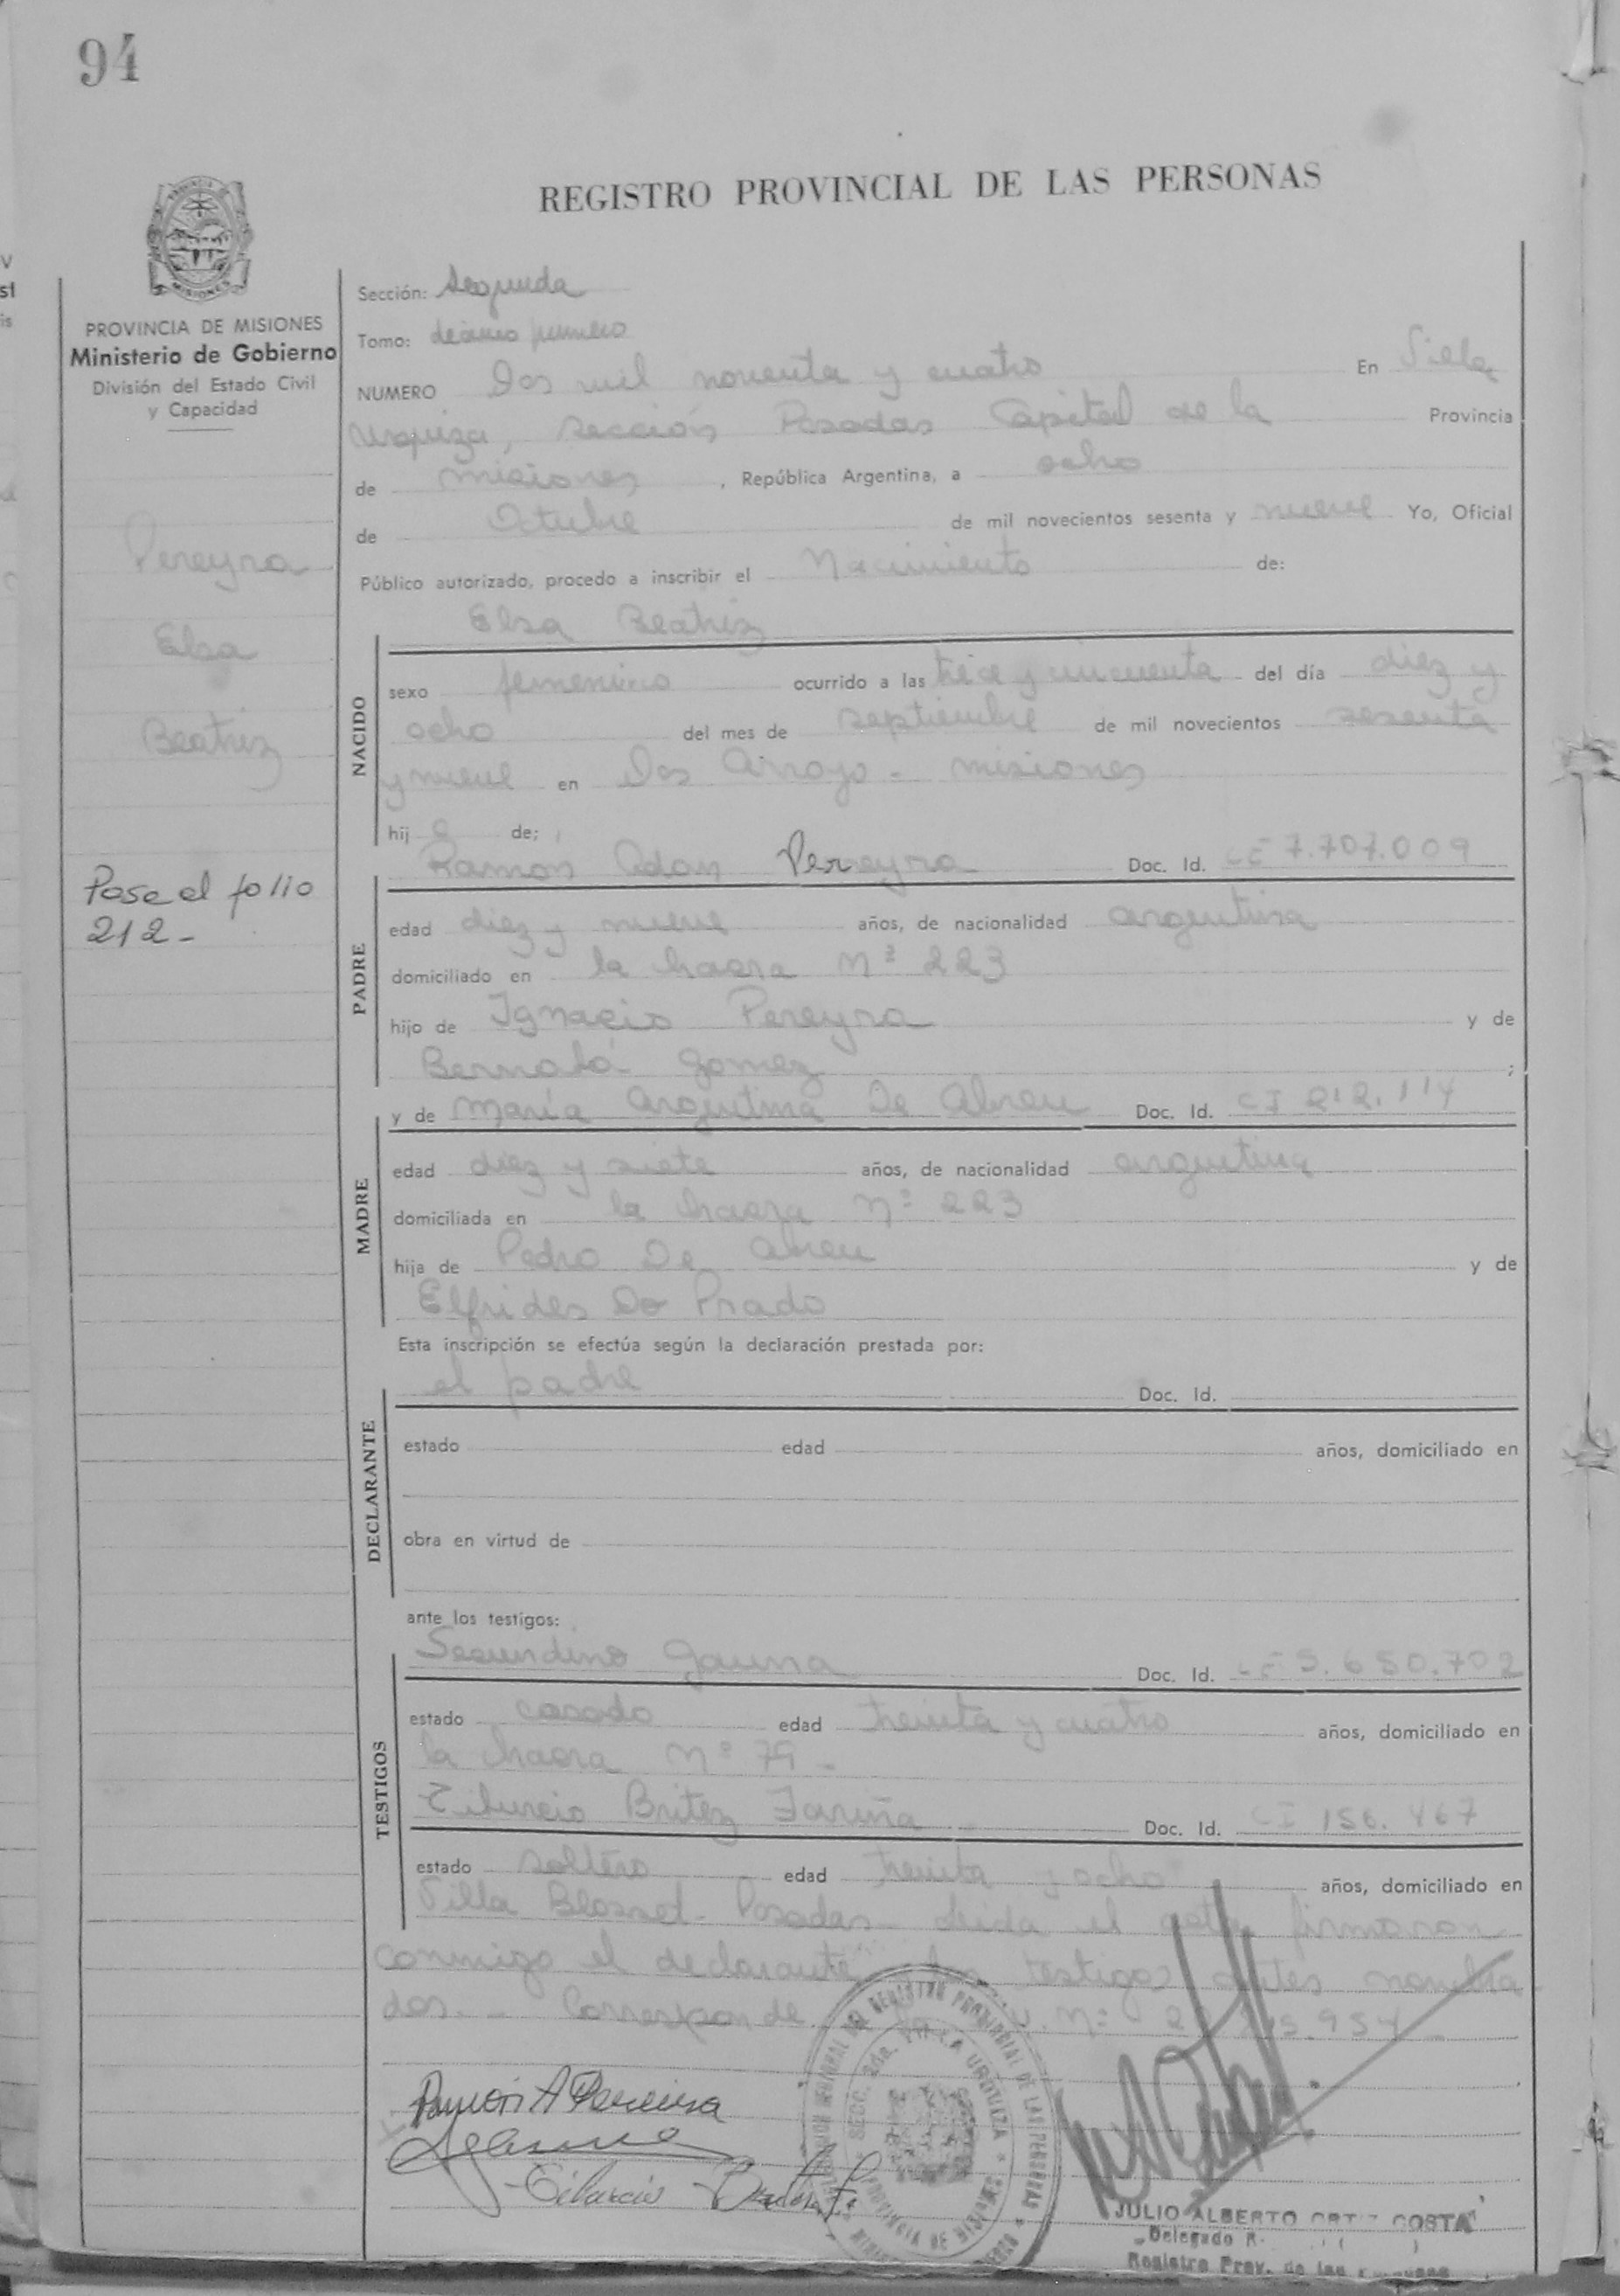 94
REGISTRO PROVINCIAL DE LAS PERSONAS
MISIONES
PROVINCIA DE MISIONES
Ministerio de Gobierno
División del Estado Civil
y Capacidad
Pereyra
Elsa
Beatriz
Pase al folio
212-
Sección: Segunda
Tomo: décimo primero
NUMERO Dos mil noventa y cuatro En Villa
Urquiza, sección Posadas Capital de la Provincia
de misiones, República Argentina, a ocho
de Octubre de mil novecientos sesenta y nueve Yo, Oficial
Público autorizado, procedo a inscribir el Nacimiento de:
Elsa Beatriz
NACIDO
sexo femenino ocurrido a las trece y cincuenta del día diez y
ocho del mes de septiembre de mil novecientos sesenta
y nueve en Dos Arroyo - misiones
hij a de;
Ramón Adan Pereyra Doc. Id. 7.707.009
PADRE
edad diez y nueve años, de nacionalidad argentina
domiciliado en la chacra Nº 223
hijo de Ignacio Pereyra y de
Bernabá Gomez ;
y de María Argentina De Abreu Doc. Id. CI 212.114
MADRE
edad diez y siete años, de nacionalidad argentina
domiciliada en la chacra Nº 223
hija de Pedro De Abreu y de
Elfrides Do Prado
Esta inscripción se efectúa según la declaración prestada por:
el padre Doc. Id.
DECLARANTE
estado edad años, domiciliado en
obra en virtud de
ante los testigos:
Secundino Gauna Doc. Id. 5.650.702
TESTIGOS
estado casado edad treinta y cuatro años, domiciliado en
la chacra Nº 79 -
Tiburcio Britez Fariña Doc. Id. CI 156.467
estado soltero edad treinta y ocho años, domiciliado en
Villa Blosset - Posadas - leída el acta firmaron
conmigo el declarante y los testigos antes nombra
dos. - Corresponde Nº
Ramón A Pereira
Tiburcio
SECC. 2da. VILLA URQUIZA
PROVINCIA DE MISIONES
REGISTRO PROVINCIAL DE LAS PERSONAS
JULIO ALBERTO ORTIZ COSTA
Delegado
Registro Prov. de las Personas